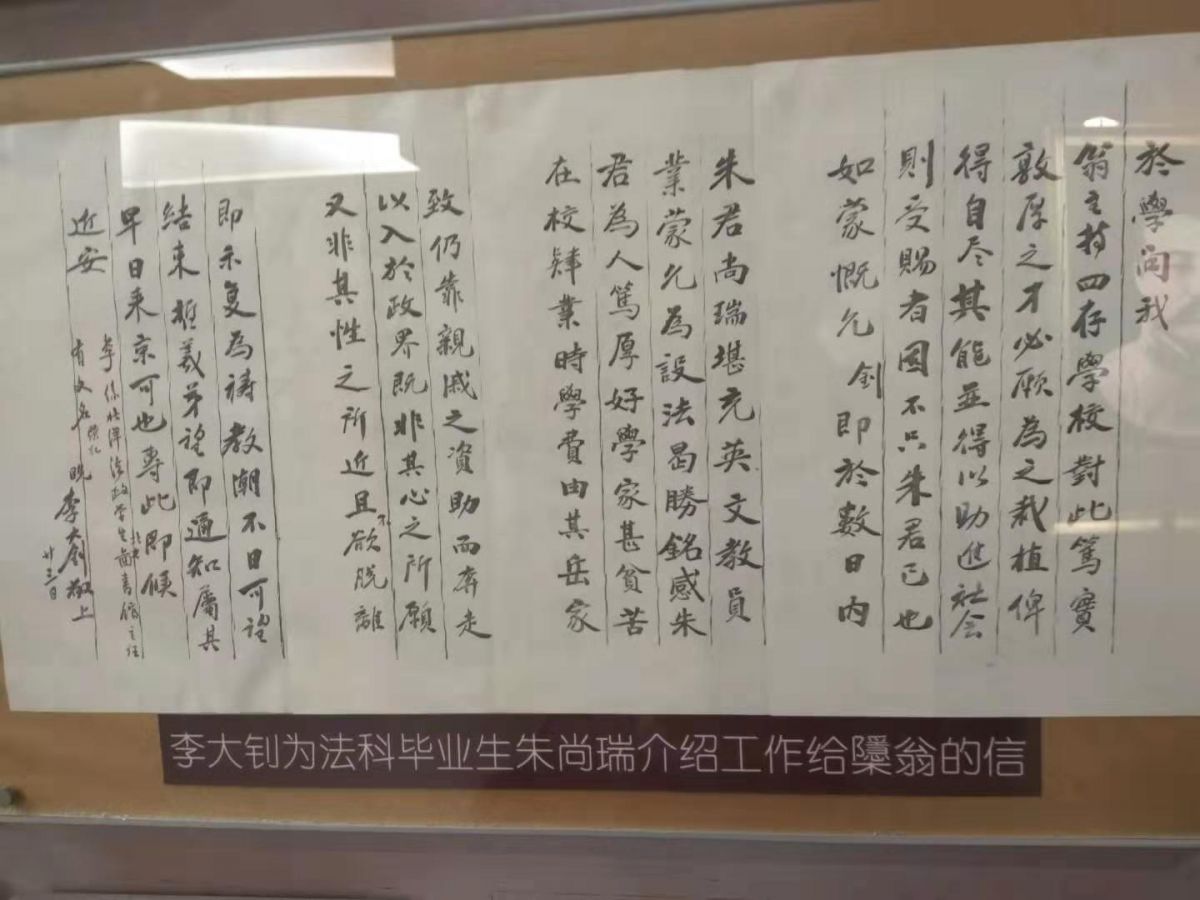 於學问我
翁主持四存學校對此篤實
敦厚之才必願為之栽植俾
得自尽其能並得以助進社会
則受賜者固不只朱君已也
如蒙慨允釗即於數日内
朱君尚瑞堪充英文教員
業蒙允為設法曷勝銘感朱
君為人篤厚好學家甚贫苦
在校肄業時學費由其岳家
致仍靠親戚之資助而奔走
以入於政界既非其心之所願
又非其性之所近且不欲脱離
即示复為禱教潮不日可望
結束 羲弟望即通知屬其
早日来京可也專此即候
近安
晚李大釗敬上
廿三日
李係北洋法政学生 北大圖書館主任
有文名
李大钊为法科毕业生朱尚瑞介绍工作给隱翁的信